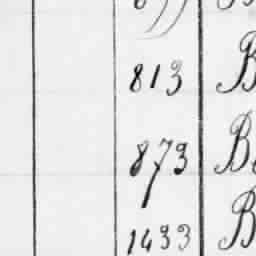 813 B
873 Be
1433 B